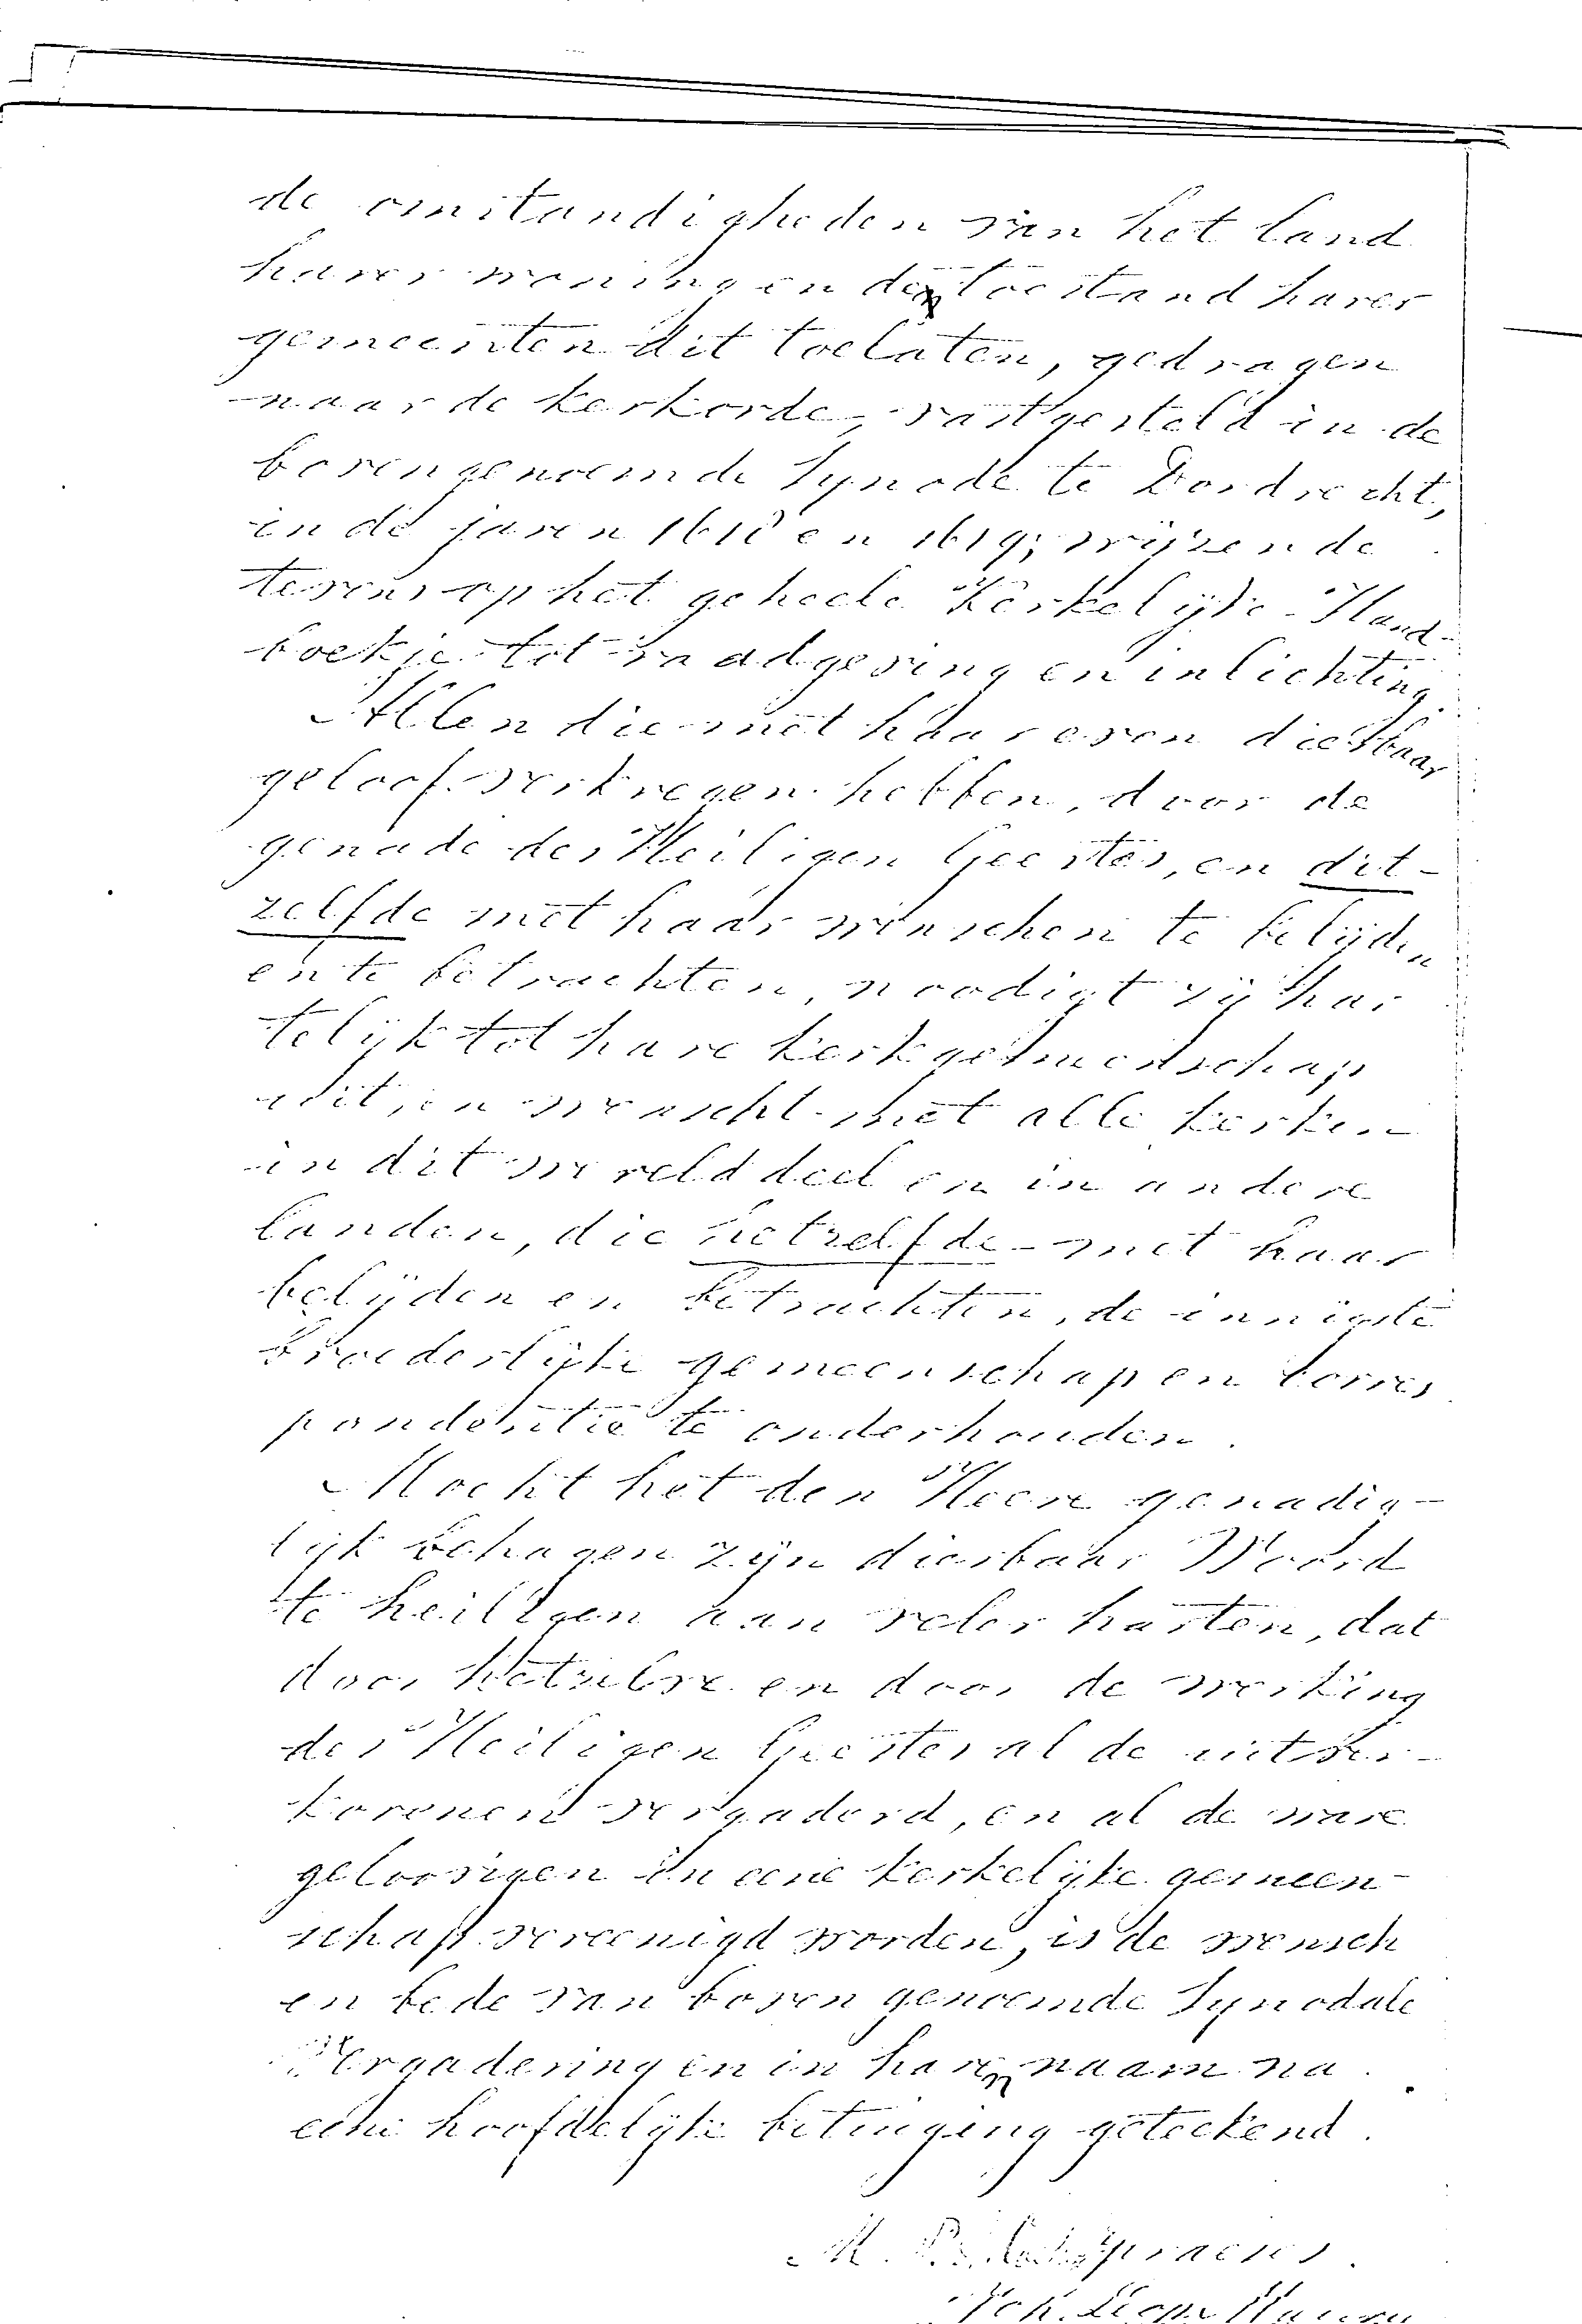 de omstandigheden van het land
harer woning en de toestand harer
gemeenten dit toelaten, gedragen
naar de kerkorde, vastgesteld in de
bovengenoemde Synode te Dordrecht,
in de jaren 1618 en 1619; wijzende
tevens op het geheele Kerkelijke Hand-
boekje tot raadgeving en inlichting.
Allen die met haar even dierbaar
geloof verkregen hebben, door de
genade des Heiligen Geestes, en dit-
zelfde met haar wenschen te belijden
en te betrachten, noodigt zij har
telijk tot hare kerkgemeenschap
uit, en wenscht met alle kerken
in dit werelddeel en in andere
landen, die hetzelfde met haar
belijden en betrachten, de innigste
broederlijke gemeenschap en corres
pondentie te onderhouden.
Mocht het den Heere genadig-
lijk behagen zijn dierbaar Woord
te heiligen aan veler harten, dat
door hetzelve en door de werking
des Heiligen Geestes al de uitver-
korenen vergaderd, en al de ware
geloovigen in eene kerkelijke gemeen-
schap vereenigd worden, is de wensch
en bede van boven genoemde Synodale
Vergadering en in haren naam na
eene hoofdelijke betuiging geteekend.
M. Praeses.